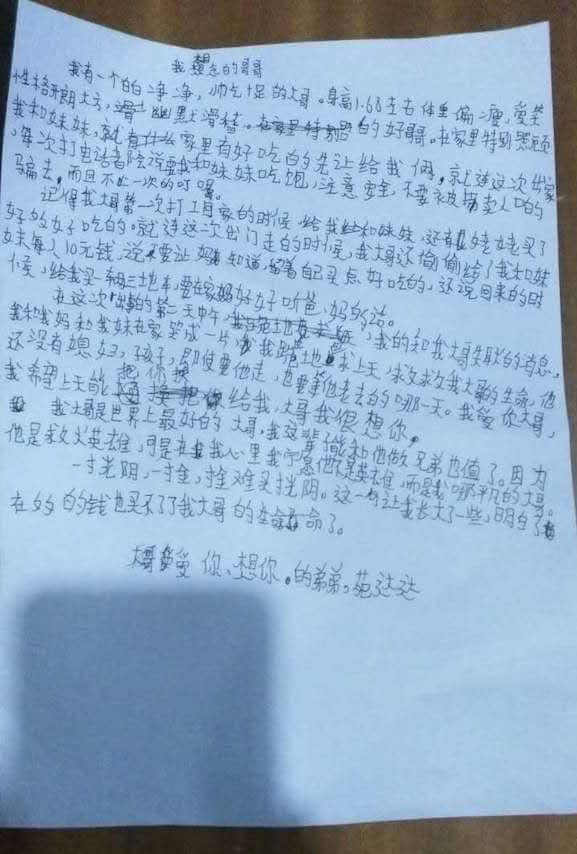 我想念的哥哥
我有一个白白净净,帅气十足的大哥。身高1.68左右体重偏瘦,爱笑
性格开朗大方,滑 幽默滑稽。在家里特别 的好哥哥。在家里特别照顾
我和妹妹,就有什么家里有好吃的先让给我俩,就连这次出家
,每次打电话给 说要我和妹妹吃饱,注意安全,不要被拐卖人口的
骗去,而且不止一次的叮嘱。
记得我大哥第一次打工回家的时候,给我 和妹妹,还有姥姥买了
好的好吃的。就连这次出门走的时候,我大哥还偷偷给了我和妹
妹每人10元钱,说不要让妈 知道,留着自己买点好吃的,还说回来的时
候,给我买一辆三地车,要在家 好好听爸、妈的话。
在这次出事的第二天中午, ,我的知我大哥失联的消息,
我和我妈和我妹在家哭成一片,我 跪地 求上天,求救救我大哥的生命,他
还没有媳妇,孩子,即使要他走,也要拿他老去的哪一天。我爱你大哥,
我希望上天能把你 还给我,大哥我很想你。
我大哥是世界上最好的大哥,我这辈子能和他做兄弟也值了。因为
他是救火英雄,可是在我心里我宁愿他不是英雄,而是我哪平凡的大哥。
一寸光阴,一寸金,寸金难买寸光阴。这一句让我长大了一些,明白了
在多的钱也买不了了我大哥的生命了。
大哥爱你、想你。的弟弟。苑达达